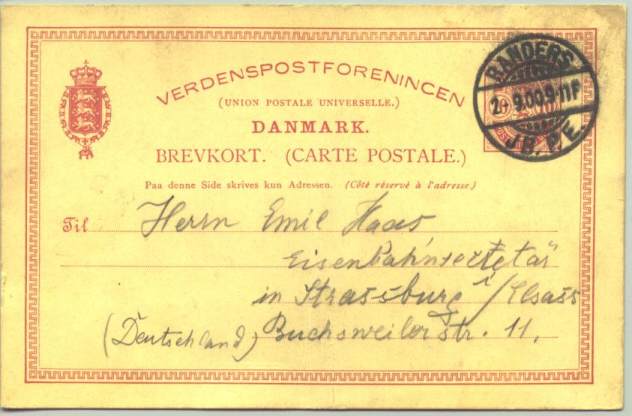 VERDENSPOSTFORENINGEN
(UNION POSTALE UNIVERSELLE.)
DANMARK.
BREVKORT. (CARTE POSTALE.)
Paa denne Side skrives kun Adressen. (Côté réservé à l'adresse.)
RANDERS
9.00.9-11F
J.B.P.E.
Til Herrn Emil Haas
Eisenbahnsekretär
in Strassburg i/Elsass
(Deutschland) Buchsweilerstr. 11.